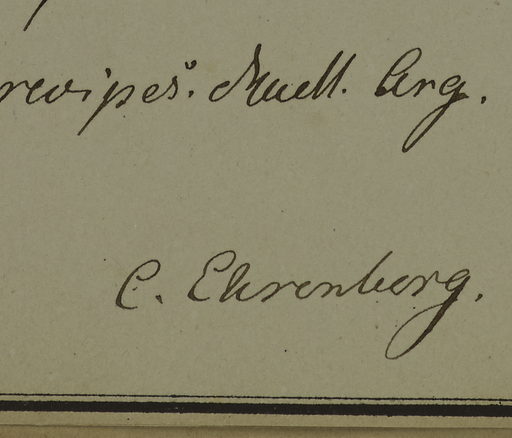 revipes. Muell. Arg.
C. Ehrenberg.